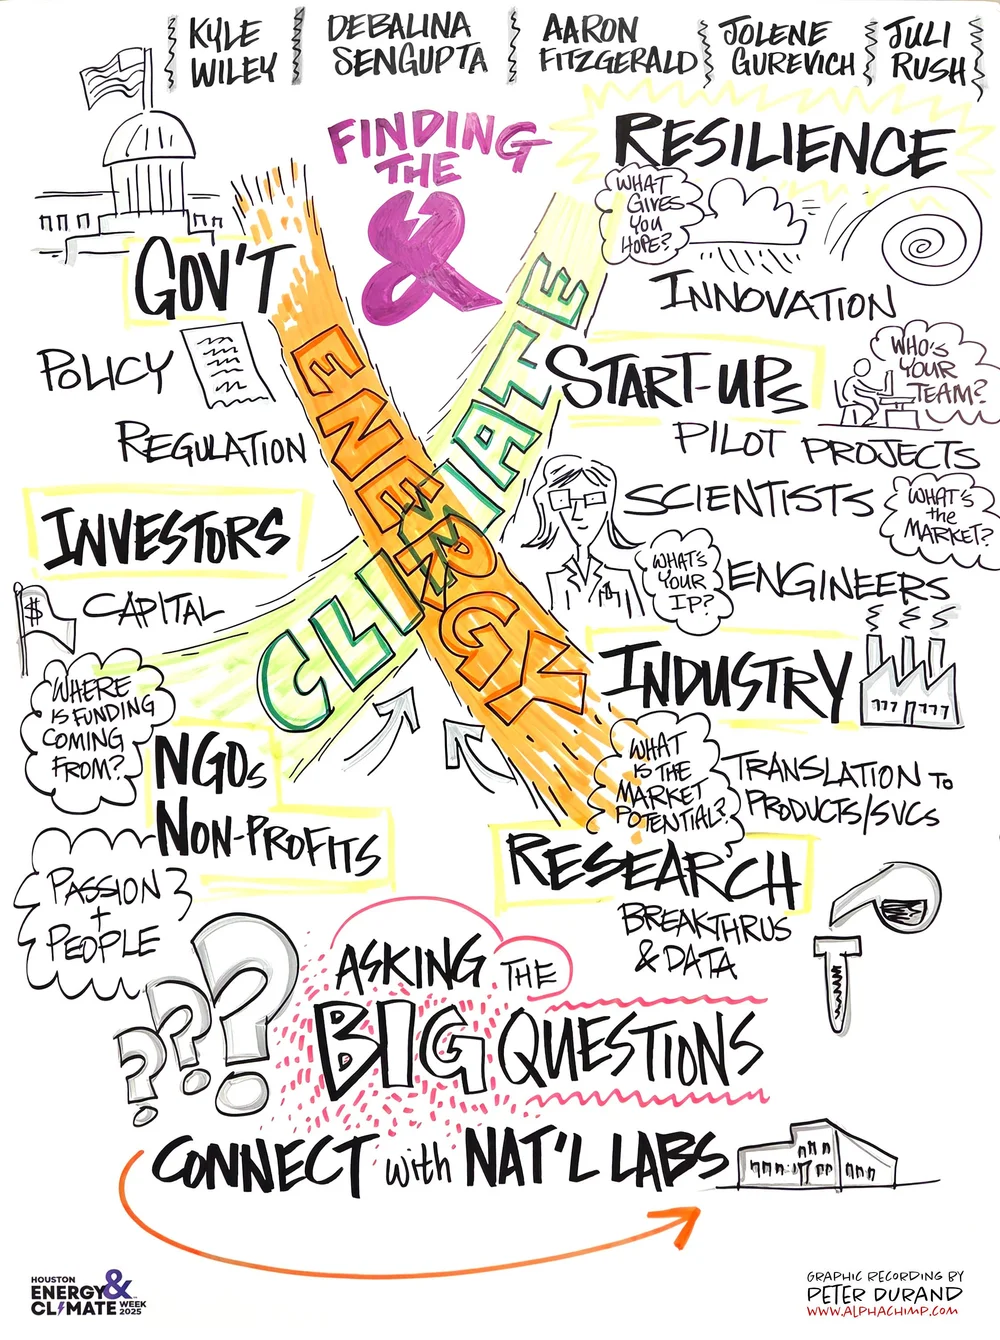 KYLE
WILEY
DEBALINA
SENGUPTA
AARON
FITZGERALD
JOLENE
GUREVICH
JULI
RUSH
FINDING
THE
&
RESILIENCE
WHAT
GIVES
YOU
HOPE?
INNOVATION
GOV'T
POLICY
REGULATION
ENERGY
CLIMATE
START-UPS
WHO'S
YOUR
TEAM?
PILOT PROJECTS
SCIENTISTS
WHAT'S
the
MARKET?
WHAT'S
YOUR
IP?
ENGINEERS
INVESTORS
$
CAPITAL
WHERE
IS FUNDING
COMING
FROM?
INDUSTRY
WHAT
IS THE
MARKET
POTENTIAL?
TRANSLATION TO
PRODUCTS/SVCS
NGOs
NON-PROFITS
PASSION
+
PEOPLE
RESEARCH
BREAKTHRUS
& DATA
???
ASKING THE
BIG QUESTIONS
CONNECT with NAT'L LABS
HOUSTON
ENERGY&
CLIMATE WEEK
2025
GRAPHIC RECORDING BY
PETER DURAND
WWW.ALPHACHIMP.COM